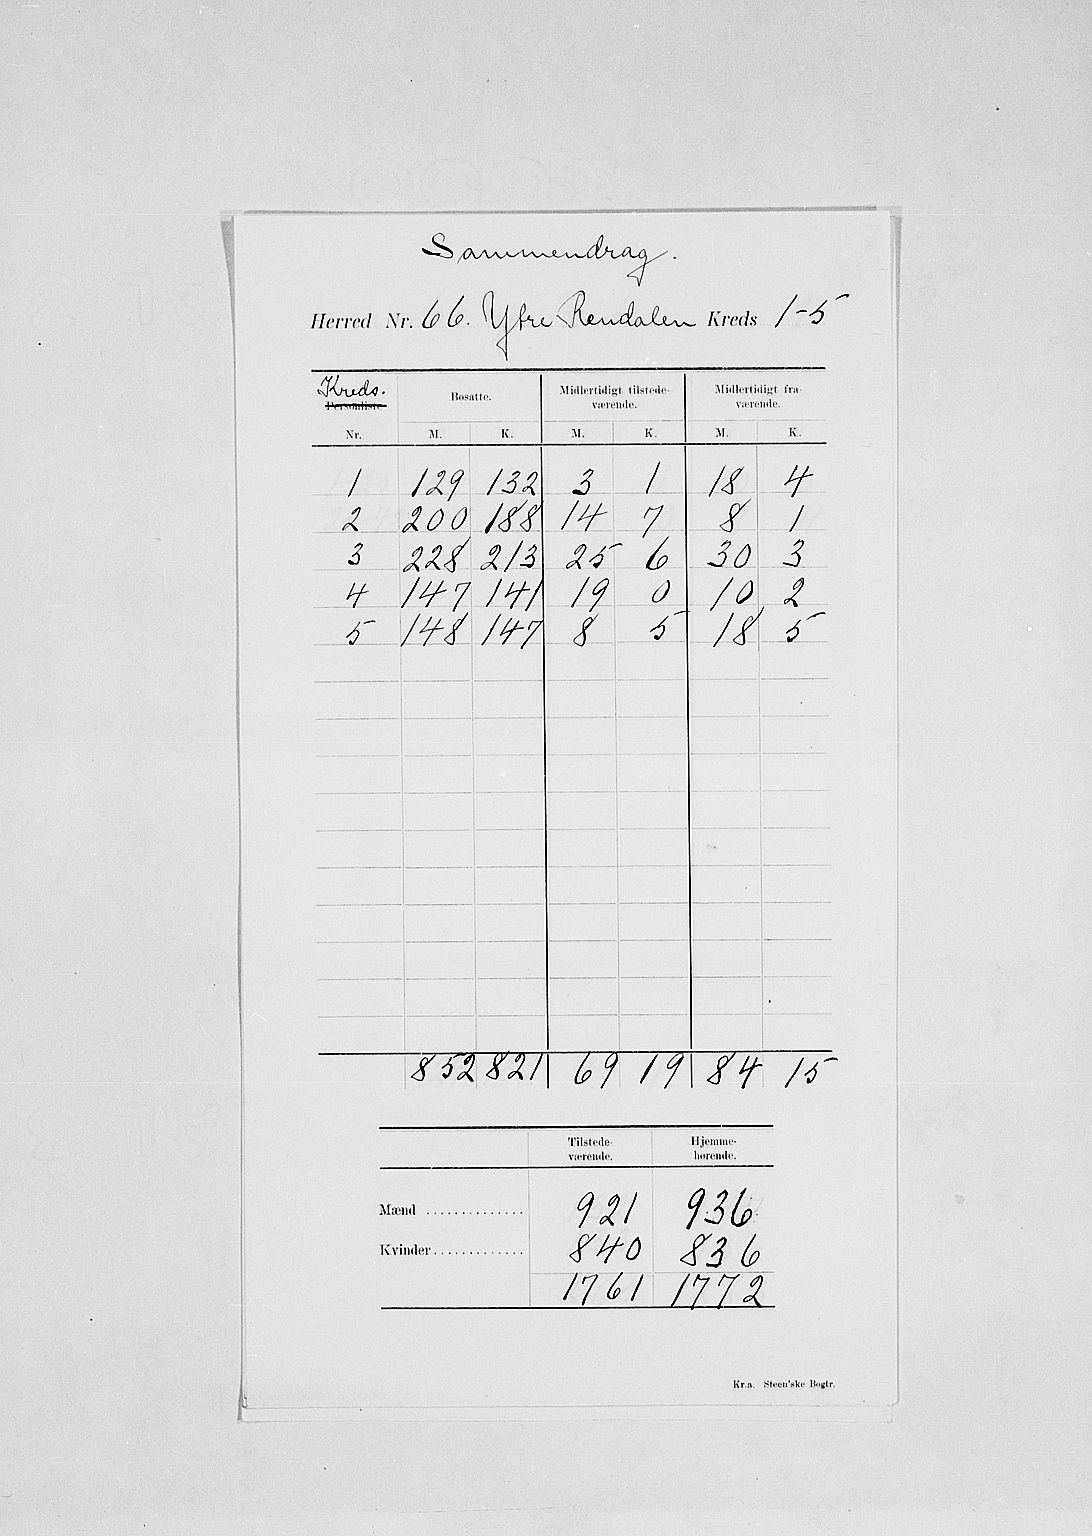 Sammendrag.
Herred Nr. 66. Ytre Rendalen Kreds 1-5
Kreds. Bosatte. Midlertidigt tilstede- Midlertidigt fra-
Personliste værende. værende.
Nr. M. K. M. K. M. K.
1 129 132 3 1 18 4
2 200 188 14 7 8 1
3 228 213 25 6 30 3
4 147 141 19 0 10 2
5 148 147 8 5 18 5
852 821 69 19 84 15
Tilstede- Hjemme-
værende. hørende.
Mænd .............. 921 936
Kvinder ............. 840 836
1761 1772
Kr.a. Steen'ske Bogtr.